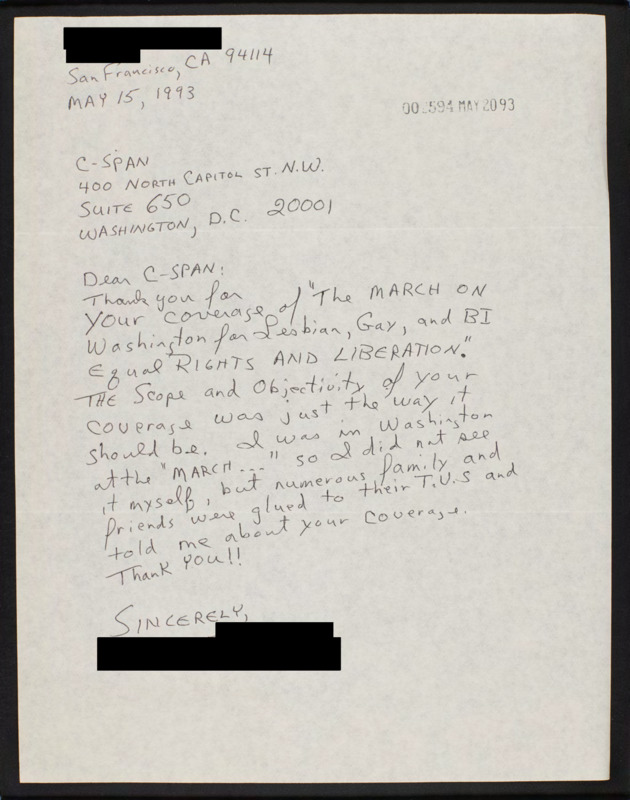 San Francisco, CA 94114
MAY 15, 1993
00 594 MAY 20 93
C-SPAN
400 NORTH CAPITOL ST. N.W.
SUITE 650
WASHINGTON, D.C. 20001
Dear C-SPAN:
Thank you for
Your coverage of "The MARCH ON
Washington for Lesbian, Gay, and BI
Equal RIGHTS AND LIBERATION."
THE Scope and Objectivity of your
coverage was just the way it
should be. I was in Washington
at the "MARCH..." so I did not see
it myself, but numerous family and
friends were glued to their T.V.s and
told me about your coverage.
Thank YOU!!
SINCERELY,